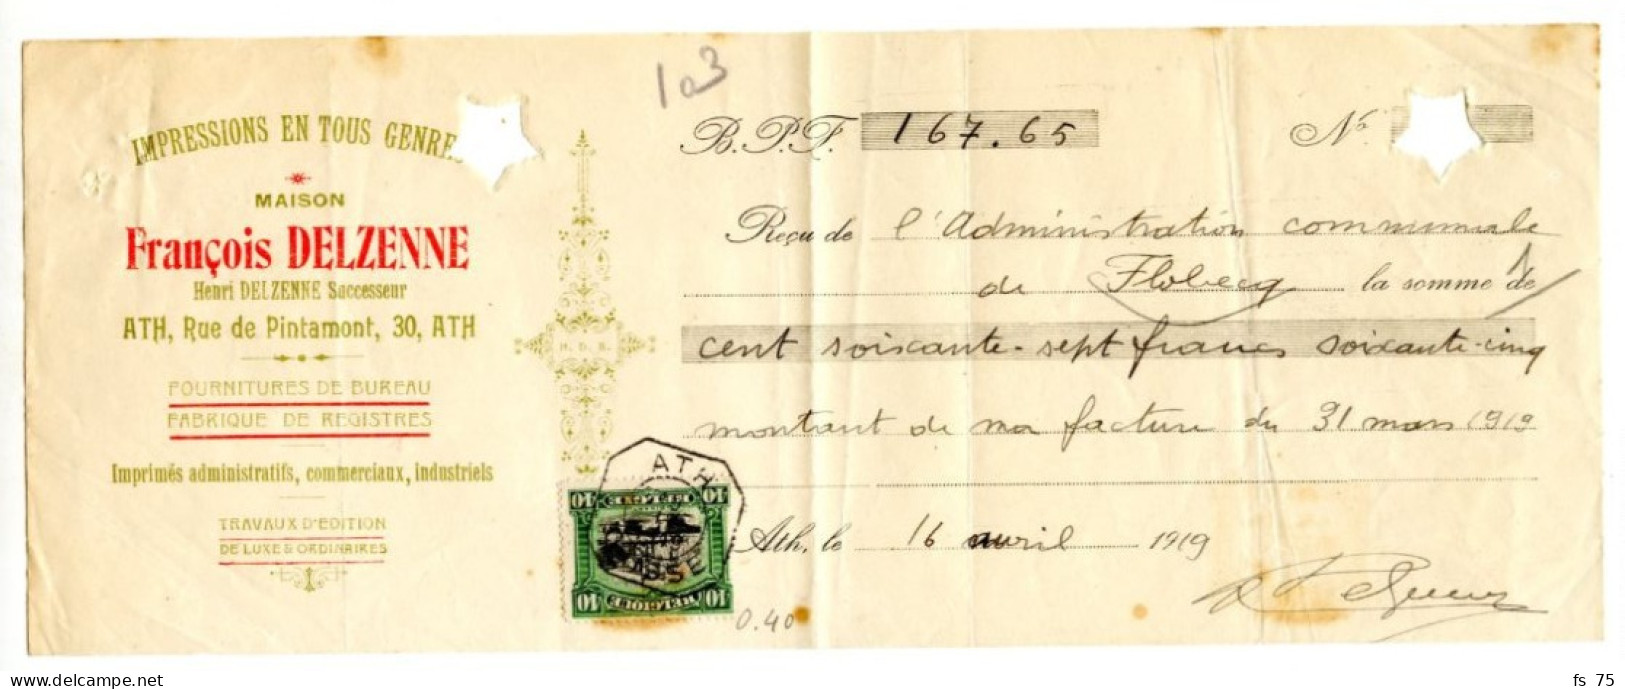 IMPRESSIONS EN TOUS GENRE
MAISON
François DELZENNE
Henri DELZENNE Successeur
ATH, Rue de Pintamont, 30, ATH
FOURNITURES DE BUREAU
FABRIQUE DE REGISTRES
Imprimés administratifs, commerciaux, industriels
TRAVAUX D'EDITION
DE LUXE & ORDINAIRES
H. D. S.
1a3
B.P.F. 167.65 No
Reçu de l'Administration communale
de Flobecq la somme de
cent soixante-sept francs soixante-cinq
montant de ma facture du 31 mars 1919
Ath, le 16 avril 1919
ATH
10 BELGIQUE 10
10 10
0.40
fs 75